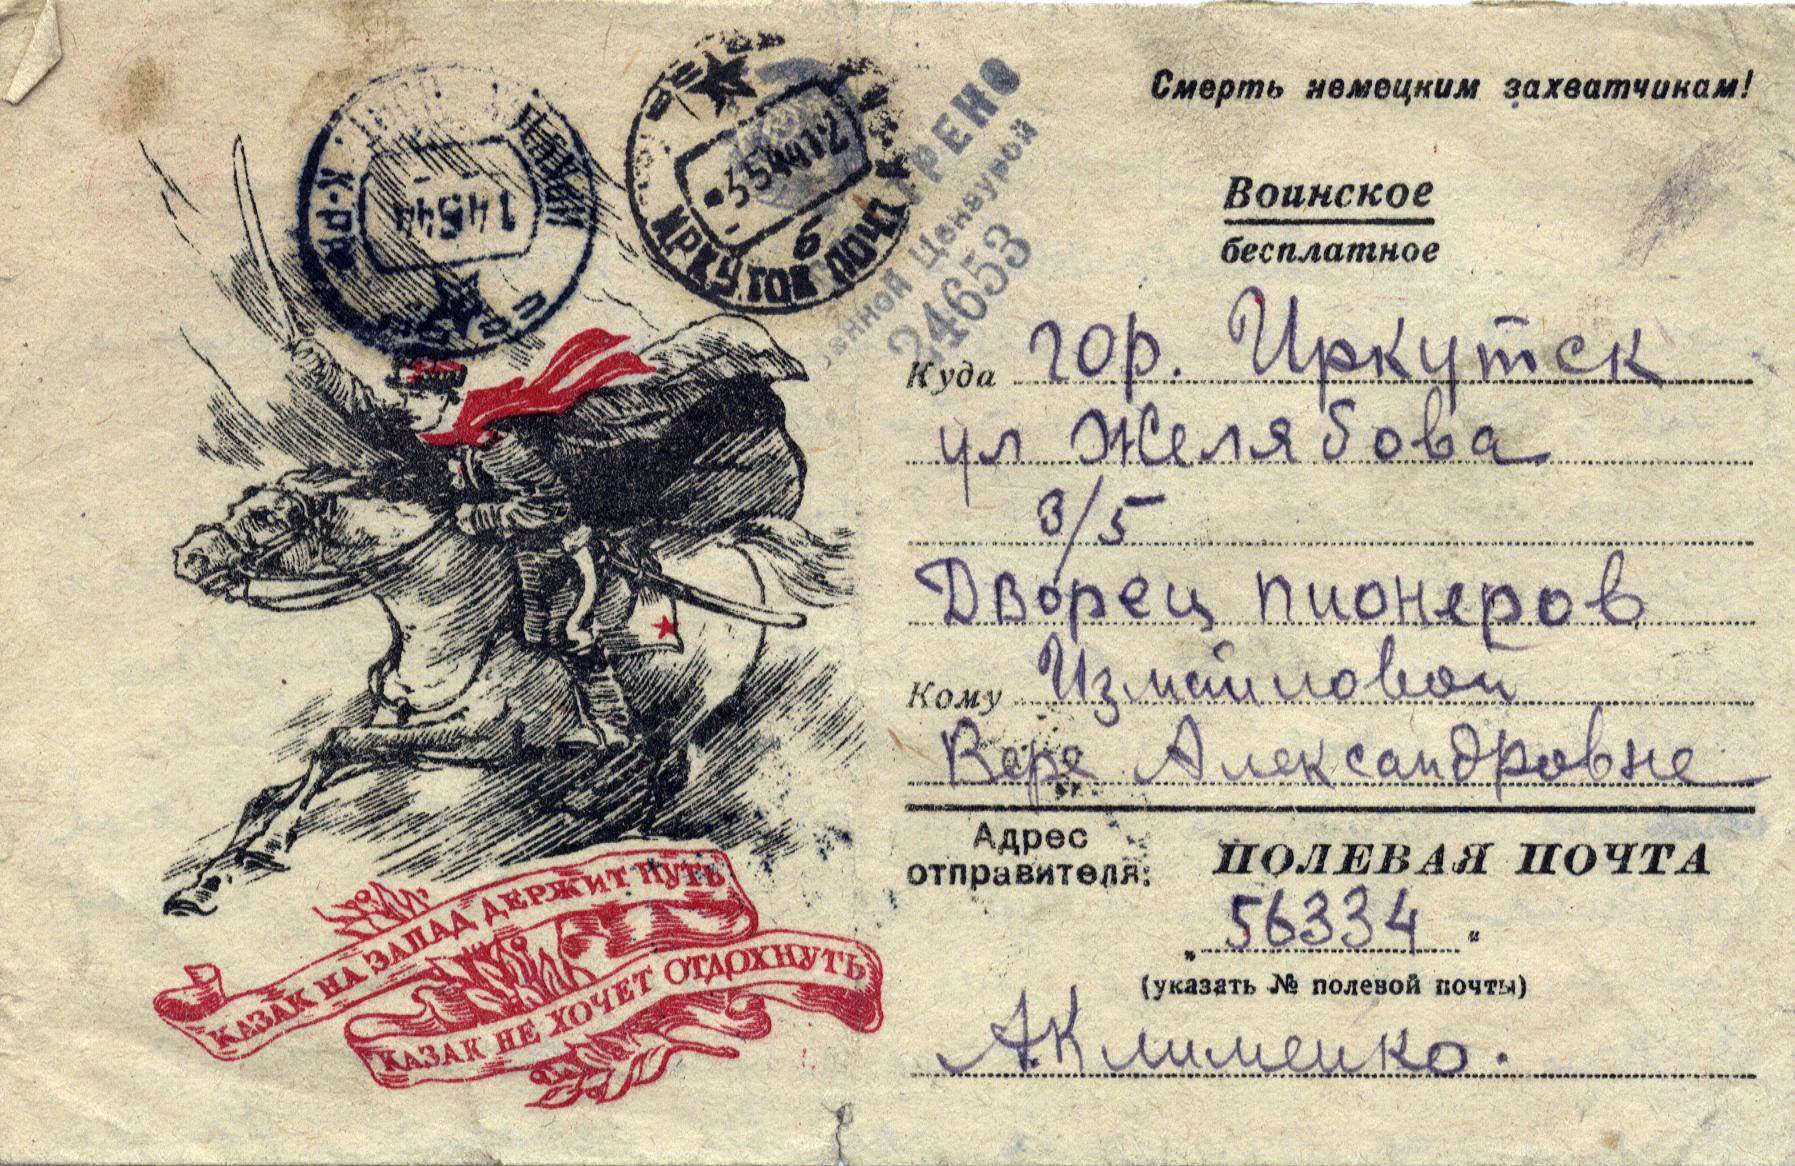 Смерть немецким захватчикам!
Воинское
бесплатное
Куда гор. Иркутск
ул Желябова
3/5
Дворец пионеров
Кому Измайловой
Вере Александровне
Адрес
отправителя:
ПОЛЕВАЯ ПОЧТА
„ 56334 "
(указать № полевой почты)
А.Клименко.
КАЗАК НА ЗАПАД ДЕРЖИТ ПУТЬ,
КАЗАК НЕ ХОЧЕТ ОТДОХНУТЬ
ИРКУТСК ПОЧТ
3 5 44 12
б
14 5 44
Цензурой
24653